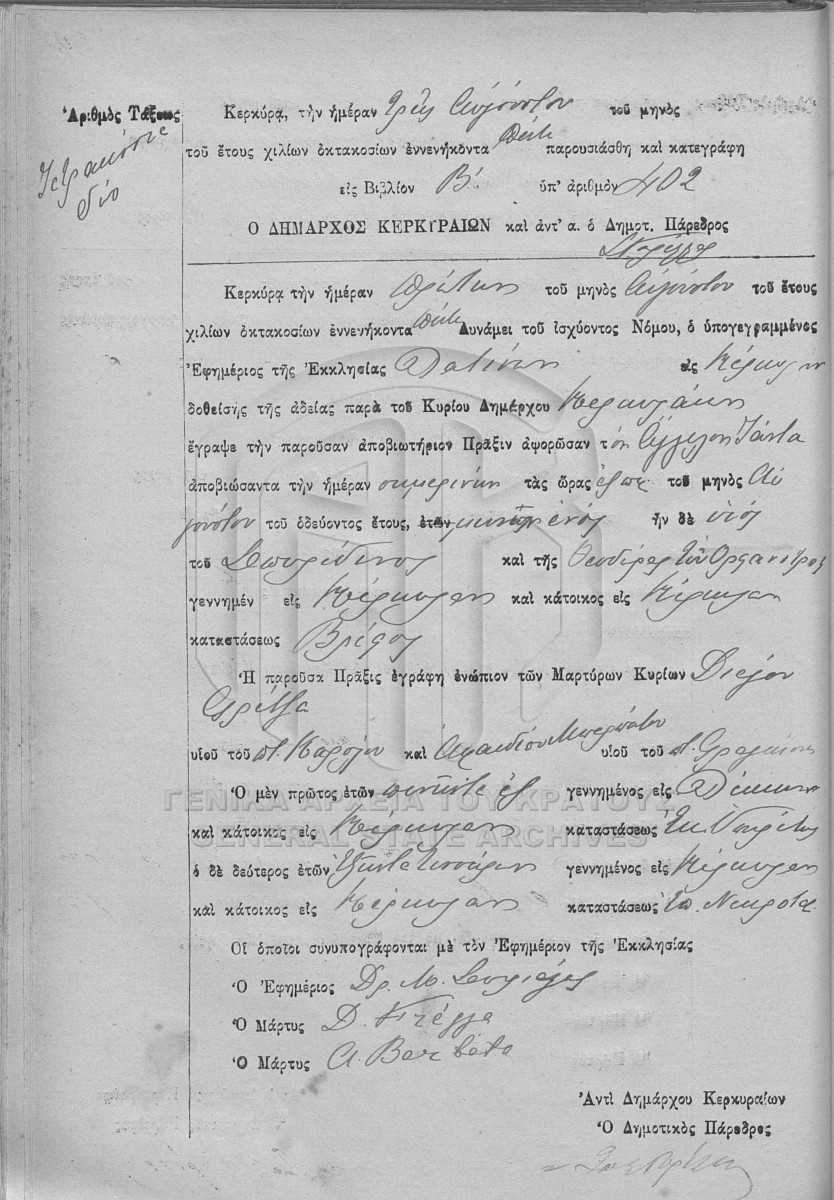 Ἀριθμὸς Τάξεως
Τετρακόσια
δύο
Κερκύρᾳ, τὴν ἡμέραν τρεῖς Αὐγούστου τοῦ μηνὸς
τοῦ ἔτους χιλίων ὀκτακοσίων ἐννενήκοντα πέντε παρουσιάσθη καὶ κατεγράφη
εἰς Βιβλίον Β' ὑπ' ἀριθμὸν 402
Ο ΔΗΜΑΡΧΟΣ ΚΕΡΚΥΡΑΙΩΝ καὶ ἀντ' α. ὁ Δημοτ. Πάρεδρος
Κερκύρᾳ τὴν ἡμέραν πρώτην τοῦ μηνὸς Αὐγούστου τοῦ ἔτους
χιλίων ὀκτακοσίων ἐννενήκοντα πέντε Δυνάμει τοῦ ἰσχύοντος Νόμου, ὁ ὑπογεγραμμένος
Ἐφημέριος τῆς Ἐκκλησίας Λατίνων εἰς Κέρκυραν
δοθείσης τῆς ἀδείας παρὰ τοῦ Κυρίου Δημάρχου Κερκυραίων
ἔγραψε τὴν παροῦσαν ἀποβιωτήριον Πρᾶξιν ἀφορῶσαν τὸν
ἀποβιώσαντα τὴν ἡμέραν σημερινὴν τὰς ὥρας τοῦ μηνὸς Αὐ
γούστου τοῦ ὁδεύοντος ἔτους, ἐτῶν ἑνός ἦν δὲ υἱὸς
τοῦ Σπυρίδωνος καὶ τῆς Θεοδώρας
γεννημέν εἰς Κέρκυραν καὶ κάτοικος εἰς Κέρκυραν
καταστάσεως Βρέφος
Ἡ παροῦσα Πρᾶξις ἐγράφη ἐνώπιον τῶν Μαρτύρων Κυρίων Διέγου
υἱοῦ τοῦ π. Καρόλου καὶ υἱοῦ τοῦ π.
Ὁ μὲν πρῶτος ἐτῶν πενῆντα ἓξ γεννημένος εἰς
καὶ κάτοικος εἰς Κέρκυραν καταστάσεως
ὁ δὲ δεύτερος ἐτῶν ἑξῆντα τεσσάρων γεννημένος εἰς Κέρκυραν
καὶ κάτοικος εἰς Κέρκυραν καταστάσεως
Οἱ ὁποῖοι συνυπογράφονται μὲ τὸν Ἐφημέριον τῆς Ἐκκλησίας
Ὁ Ἐφημέριος
Ὁ Μάρτυς Δ.
Ὁ Μάρτυς A. Barbato
Ἀντὶ Δημάρχου Κερκυραίων
Ὁ Δημοτικὸς Πάρεδρος
ΓΕΝΙΚΑ ΑΡΧΕΙΑ ΤΟΥ ΚΡΑΤΟΥΣ
GENERAL STATE ARCHIVES